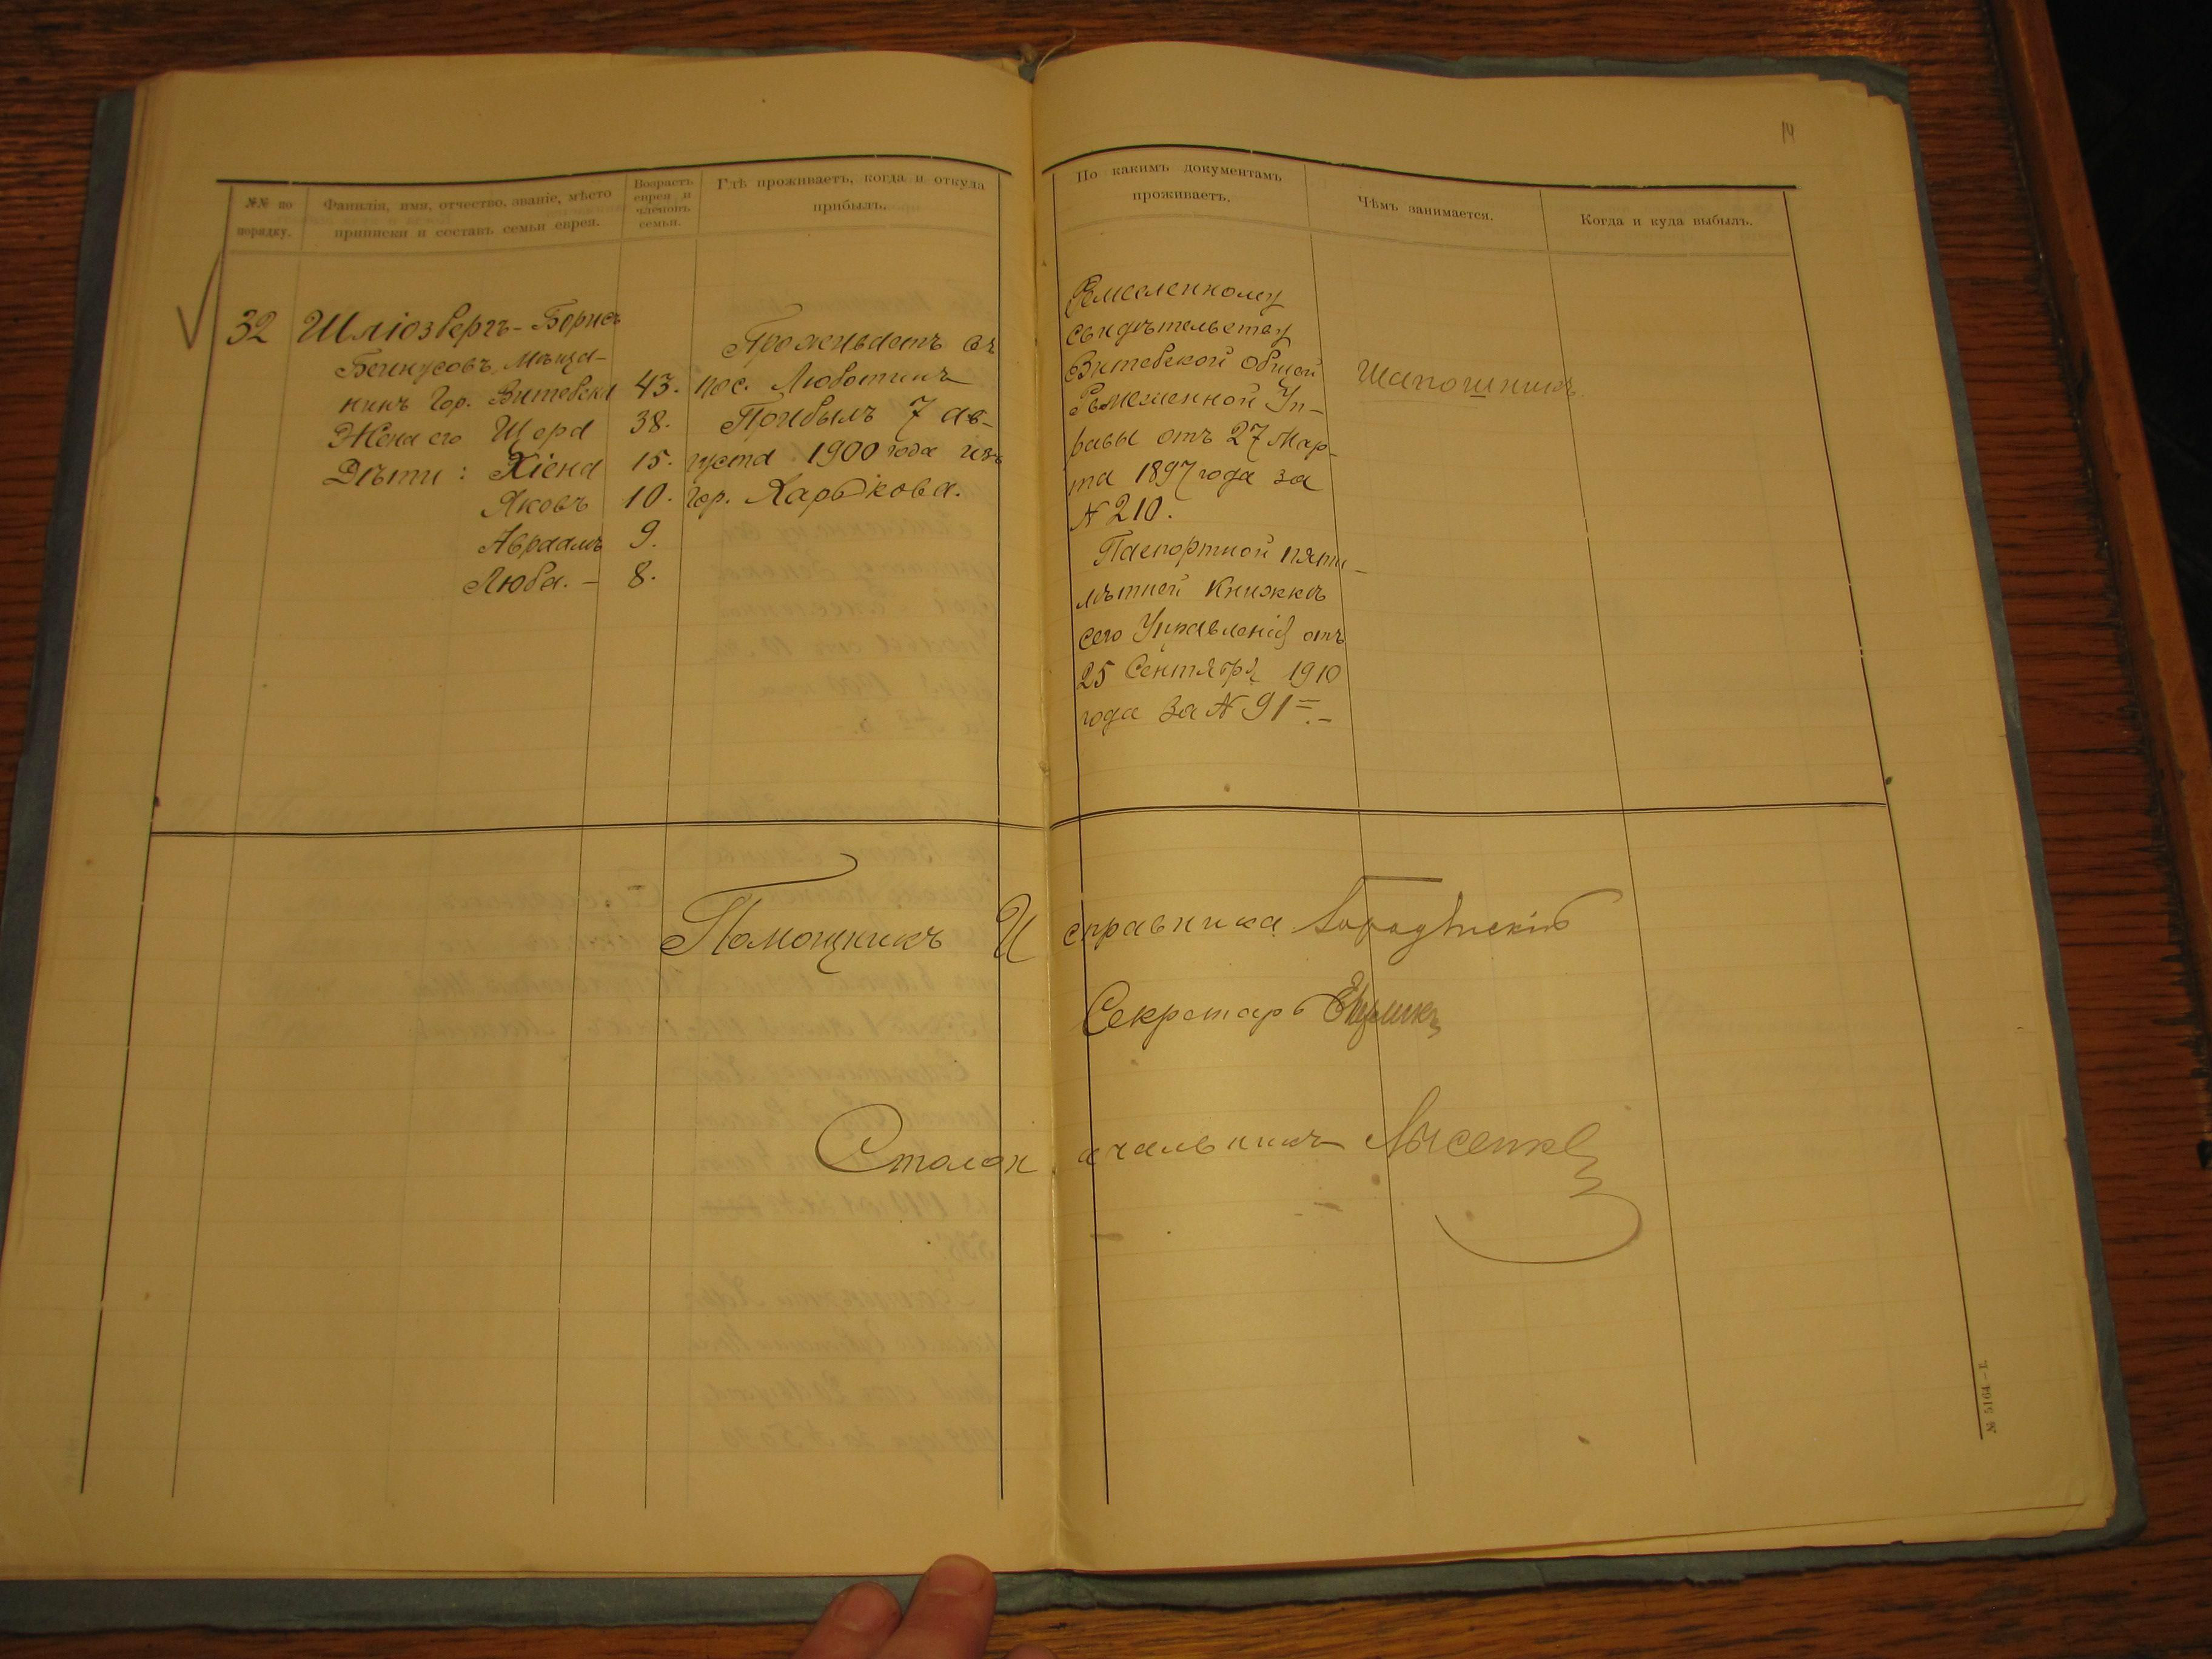 14
№№ по
порядку.
Фамилія, имя, отчество, званіе, мѣсто
приписки и составъ семьи еврея.
Возрастъ
еврея и
членовъ
семьи.
Гдѣ проживаетъ, когда и откуда
прибылъ.
По какимъ документамъ
проживаетъ.
Чѣмъ занимается.
Когда и куда выбылъ.
32 Шліозбергъ-Борисъ
Бейнусовъ, Мѣща-
нинъ Гор. Витебска 43.
Жена его 38.
Дѣти: Хіена 15.
Яковъ 10.
Авраамъ 9.
Люба. - 8.
Проживаетъ въ
пос. Люботинъ
Прибылъ 7 ав-
густа 1900 года изъ
гор. Харькова.
Ремесленному
свидѣтельству
Витебской общей
Ремесленной Уп-
равы отъ 27 Мар-
та 1897 года за
№ 210.
Паспортной пяти-
лѣтней Книжкѣ
сего Управленія отъ
25 Сентября 1910
года за № 91 =.-
Шапошникъ.
Помощникъ Исправника
Секретарь
Столоначальникъ Лысенко
№ 5164 — Г.